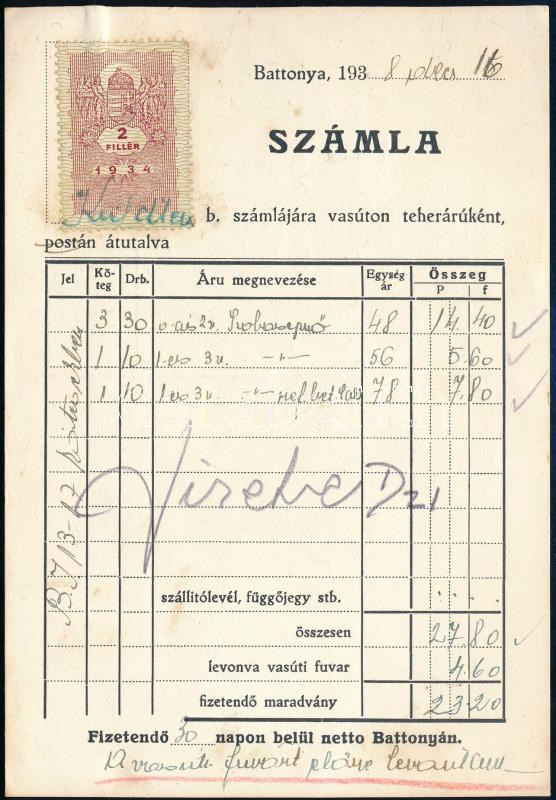 Battonya, 1938 dec 16
2
FILLÉR
1934
SZÁMLA
b. számlájára vasúton teherárúként,
postán átutalva
Jel Kö-teg Drb. Áru megnevezése Egység ár Összeg P f
3 30 Szobaseprő 48 14.40
1 10 1 es 3 v. -"- 56 5.60
1 10 1 es 3 v. -"- 78 7.80
szállitólevél, függőjegy stb.
összesen 27.80
levonva vasúti fuvar 4.60
fizetendő maradvány 23.20
Fizetendő 30 napon belül netto Battonyán.
A vasuti fuvart